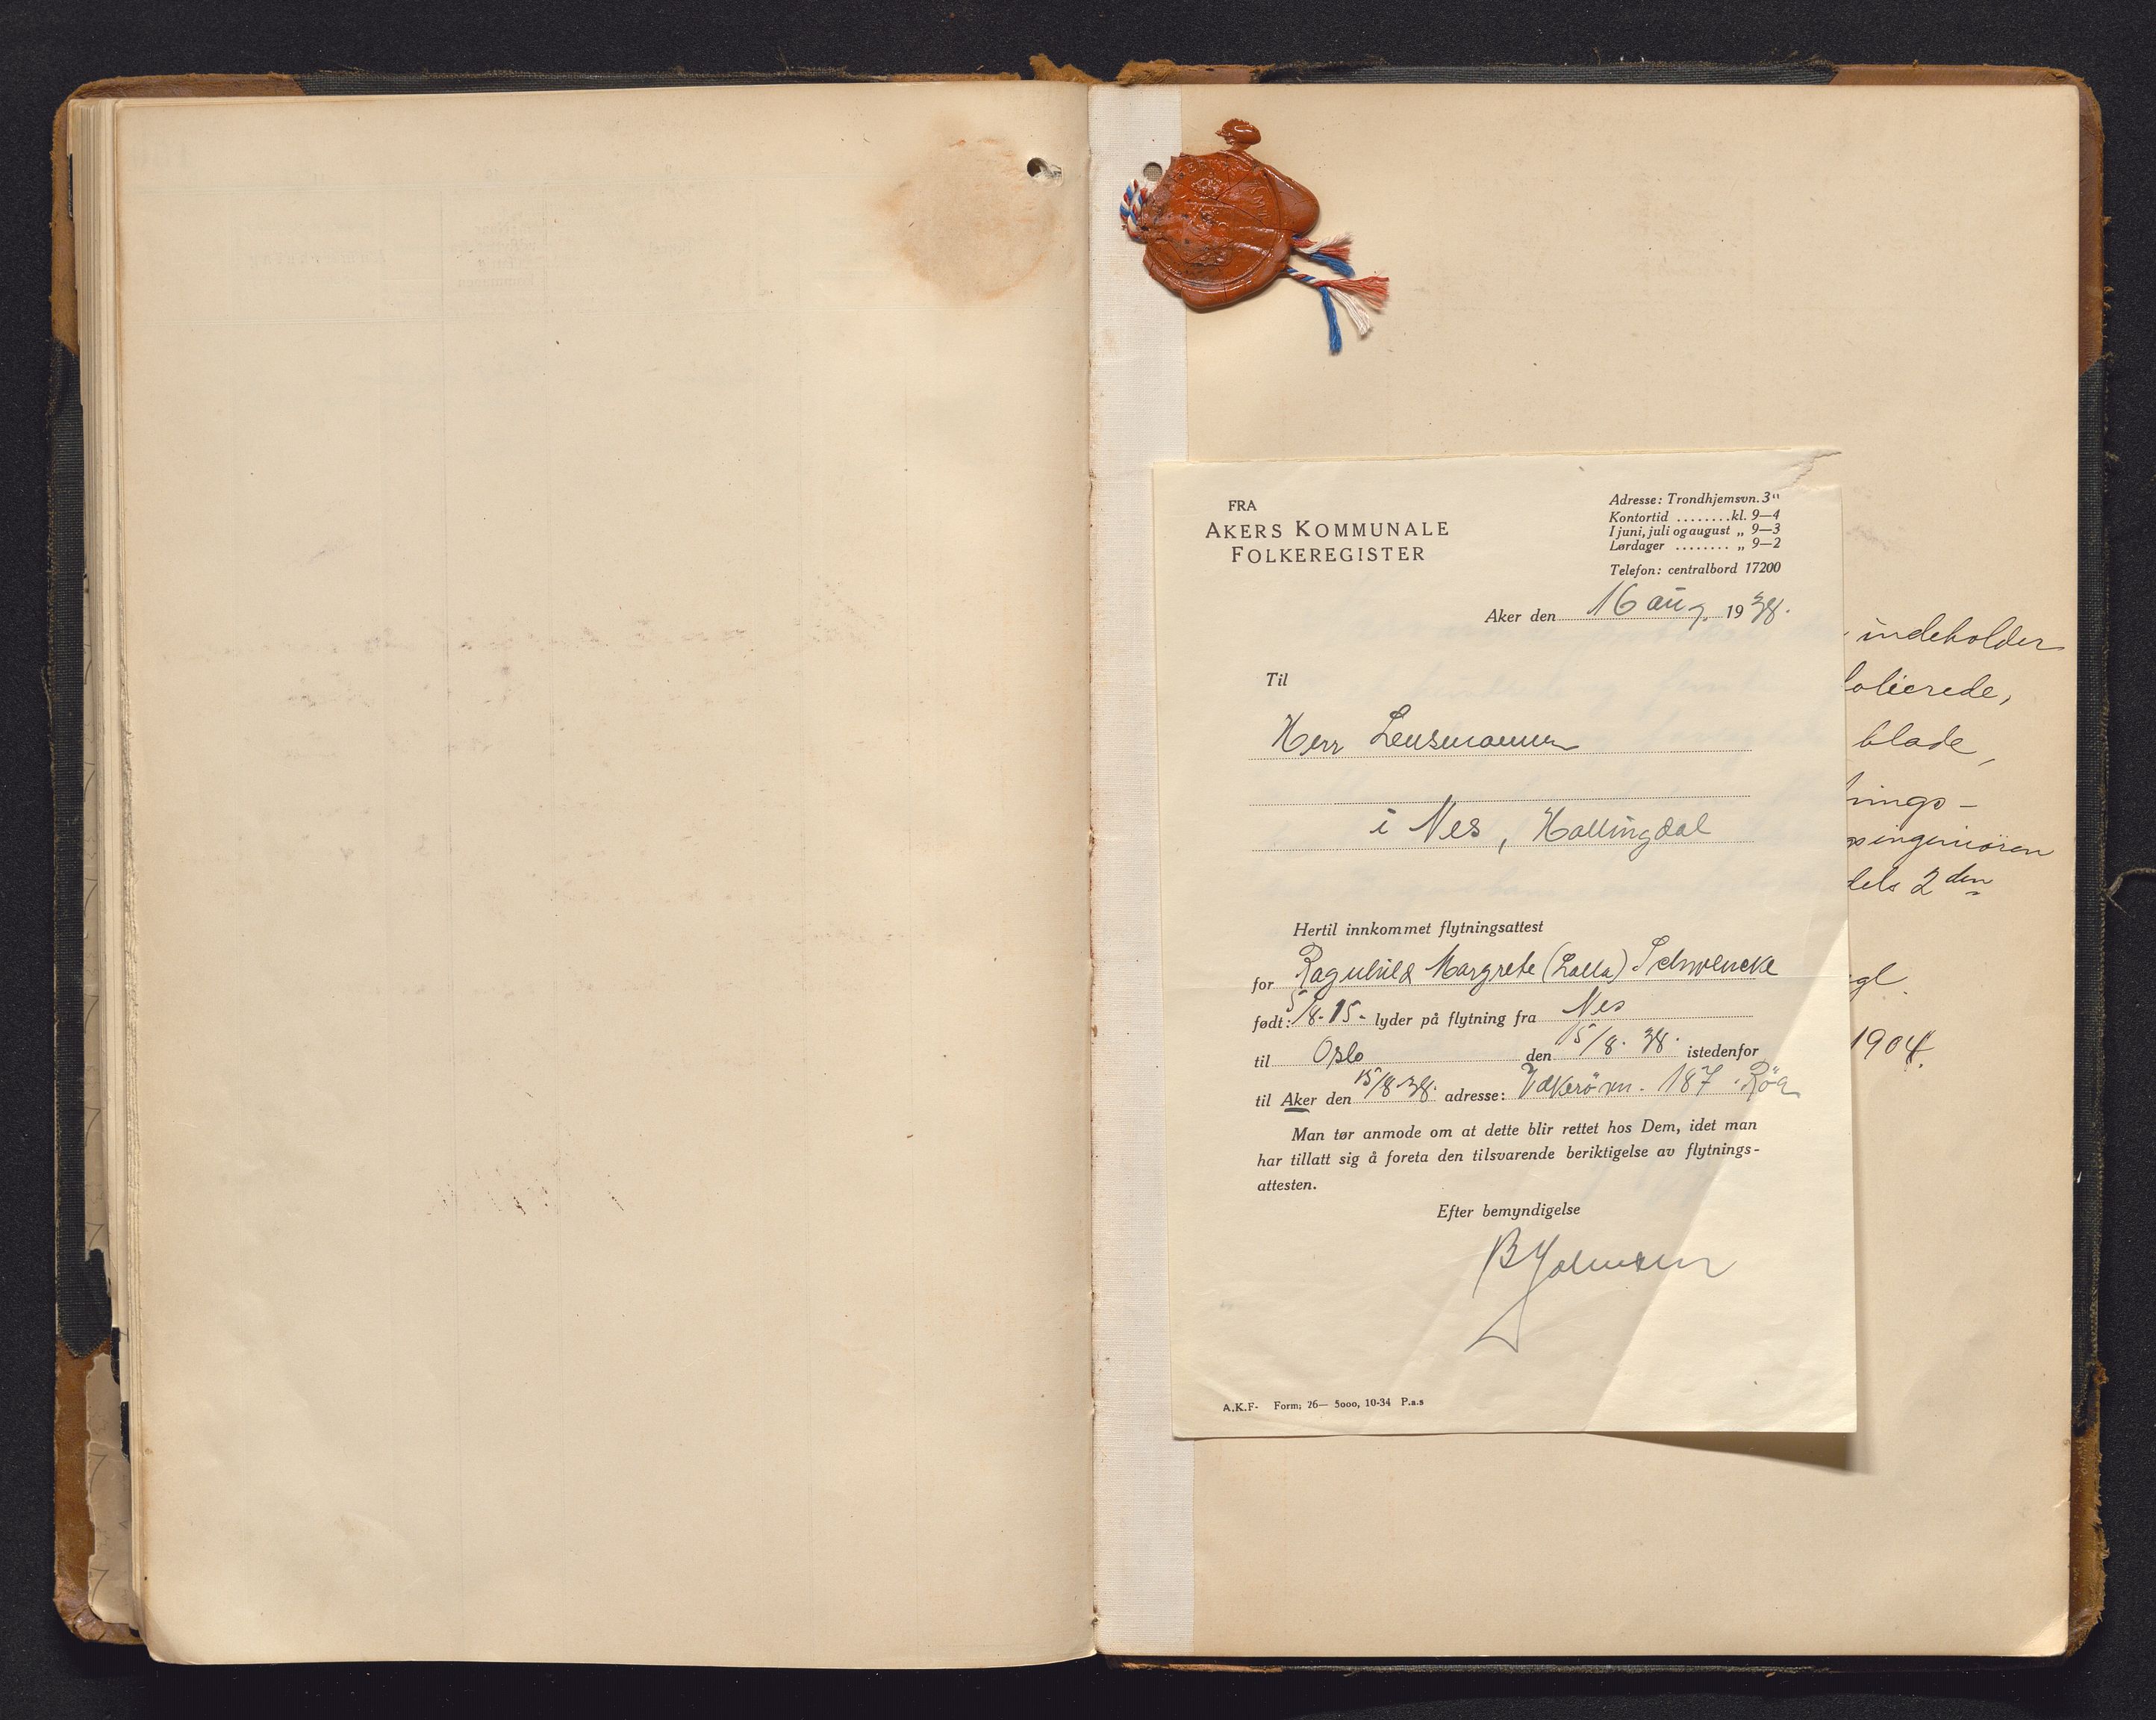 FRA
AKERS KOMMUNALE
FOLKEREGISTER
Adresse: Trondhjemsvn. 3"
Kontortid ........kl. 9—4
I juni, juli og august „ 9—3
Lørdager ........ „ 9—2
Telefon: centralbord 17200
Aker den 16 aug. 1938.
Til
Herr Lensmannen
i Nes, Hallingdal
Hertil innkommet flytningsattest
for Ragnhild Margrete (Lalla) Schwencke
født: 5/8-15- lyder på flytning fra Nes
til Oslo den 15/8. 38. istedenfor
til Aker den 15/8-38. adresse: Vækerövn. 187. Röa
Man tør anmode om at dette blir rettet hos Dem, idet man
har tillatt sig å foreta den tilsvarende beriktigelse av flytnings-
attesten.
Efter bemyndigelse
B Johnsen
A.K.F- Form: 26— 5000, 10-34 P.a.s
indeholder
folierede,
blade,
nings-
ingeniören
dels 2den
gl.
1904.